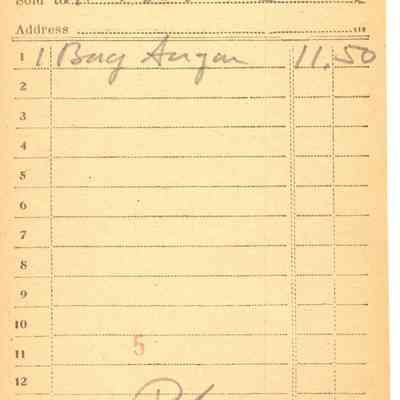 Sold to
Address
1 1 Bag Sugar 11.50
2
3
4
5
6
7
8
9
10
11 5
12